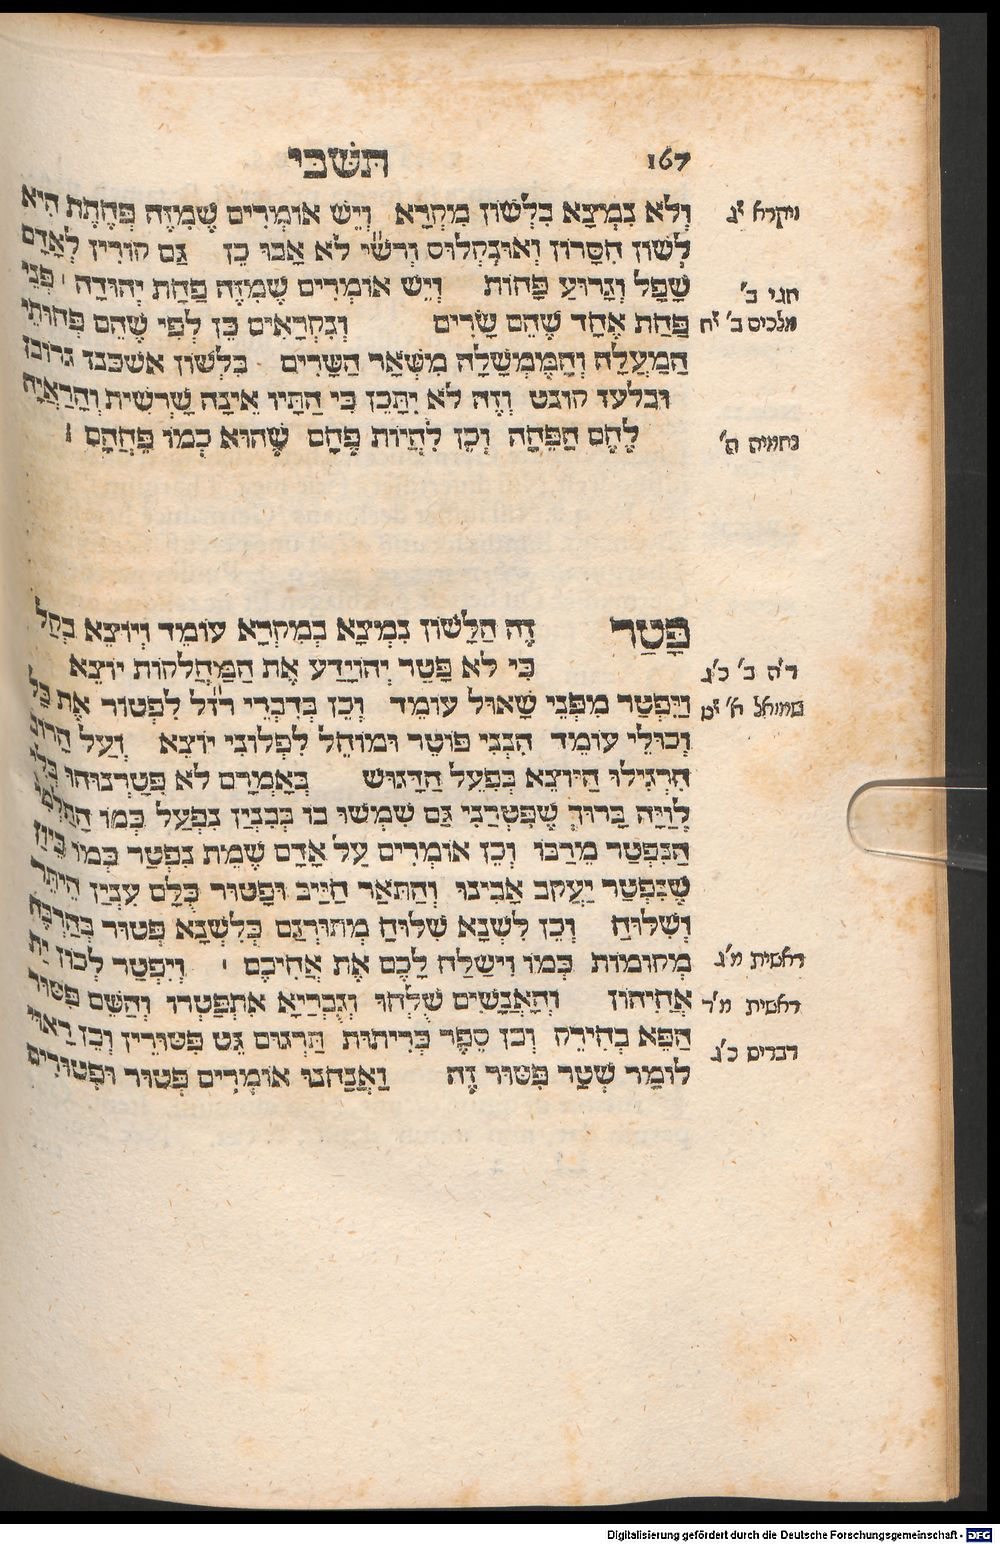 167 תשבי
וְלֹא נִמְצָא בִלְשׁוֹן מִקְרָא וְיֵשׁ אוֹמְרִים שֶׁמִּזֶּה פְּחֶתֶת הִיא
ויקרא י״ג
לְשׁוֹן חִסָּרוֹן וְאוּנְקְלוּס וְרַשִׁ״י לֹא אָבוּ כֵן גַּם קוֹרִין לְאָדָם
שָׁפָל וְגָרוּעַ פָּחוּת וְיֵשׁ אוֹמְרִים שֶׁמִּזֶּה פַּחַת יְהוּדָה ׳ פְּנֵי
חגי ב׳
פַּחַת אֶחָד שֶׁהֵם שָׂרִים וְנִקְרָאִים כֵּן לְפִי שֶׁהֵם פְּחוּתֵי
מלכים ב׳ י״ח
הַמַּעֲלָה וְהַמֶּמְשָׁלָה מִשְּׁאַר הַשָּׂרִים בִּלְשׁוֹן אשכנז גרובן
ובלעז קונט וְזֶה לֹא יִתָּכֵן כִּי הַתָּיו אֵינָהּ שָׁרְשִׁית וְהָרְאָיָה
לֶחֶם הַפֶּחָה וְכֵן לִהְיוֹת פֶּחָם שֶׁהוּא כְמוֹ פֶּחָהָם ׃
נחמיה ה׳
פָּטַר זֶה הַלָּשׁוֹן נִמְצָא בְמִקְרָא עוֹמֵד וְיוֹצֵא בְקַל
כִּי לֹא פָּטַר יְהוֹיָדָע אֶת הַמַּחְלְקוֹת יוֹצֵא
ד״ה ב׳ כ״ג
וַיִּפְטַר מִפְּנֵי שָׁאוּל עוֹמֵד וְכֵן בְּדִבְרֵי רַזַ״ל לִפְטוֹר אֶת כָּל
שמואל א׳ י״ט
וְכוּלֵי עוֹמֵד הִנְנִי פּוֹטֵר וּמוֹחֵל לִפְלוֹנִי יוֹצֵא וְעַל הָרוֹב
הִרְגִּילוּ הַיּוֹצֵא בְּפֹעַל הַדָּגוּשׁ בְּאָמְרָם לֹא פְּטַרְנוּהוּ בְּלֹי
לְוָיָה בָּרוּךְ שֶׁפִּטְרַנִי גַּם שִׁמְּשׁוּ בוֹ בְּבִנְיַן נִפְעַל כְּמוֹ הַתַּלְמִי
הַנִּפְטַר מֵרַבּוֹ וְכֵן אוֹמְרִים עַל אָדָם שֶׁמֵּת נִפְטַר כְּמוֹ כֵּיוָן
שֶׁנִּפְטַר יַעֲקֹב אָבִינוּ וְהַתֹּאַר חַיָּיב וּפָטוּר כֻּלָּם עִנְיַן הֶיתֵּר
וְשִׁלּוּחַ וְכֵן לִשְׁנָא שִׁלּוּחַ מְתוּרְגָּם בְּלִשְׁנָא פְּטוּר בְּהַרְבֵּה
מְקוֹמוֹת כְּמוֹ וִישַׁלַּח לָכֶם אֶת אֲחִיכֶם ׳ וְיִפְטַר לְכוֹן יָת
בראשית מ״ג
אֲחִיהוֹן וְהָאֲנָשִׁים שֻׁלְּחוּ וְגֻבְרַיָּא אִתְפַּטָּרוּ וְהַשֵּׁם פִּטּוּר
בראשית מ״ד
הַפֵּא בְחִירֵק וכן סֵפֶר כְּרִיתוּת תַּרְגּוּם גֵּט פִּטּוּרִין וְכֵן רָאוּי
דברים כ״ג
לוֹמַר שְׁטַר פִּטּוּר זֶה וַאֲנַחְנוּ אוֹמְרִים פְּטוּר וּפְטוּרִים
Digitalisierung gefördert durch die Deutsche Forschungsgemeinschaft - DFG